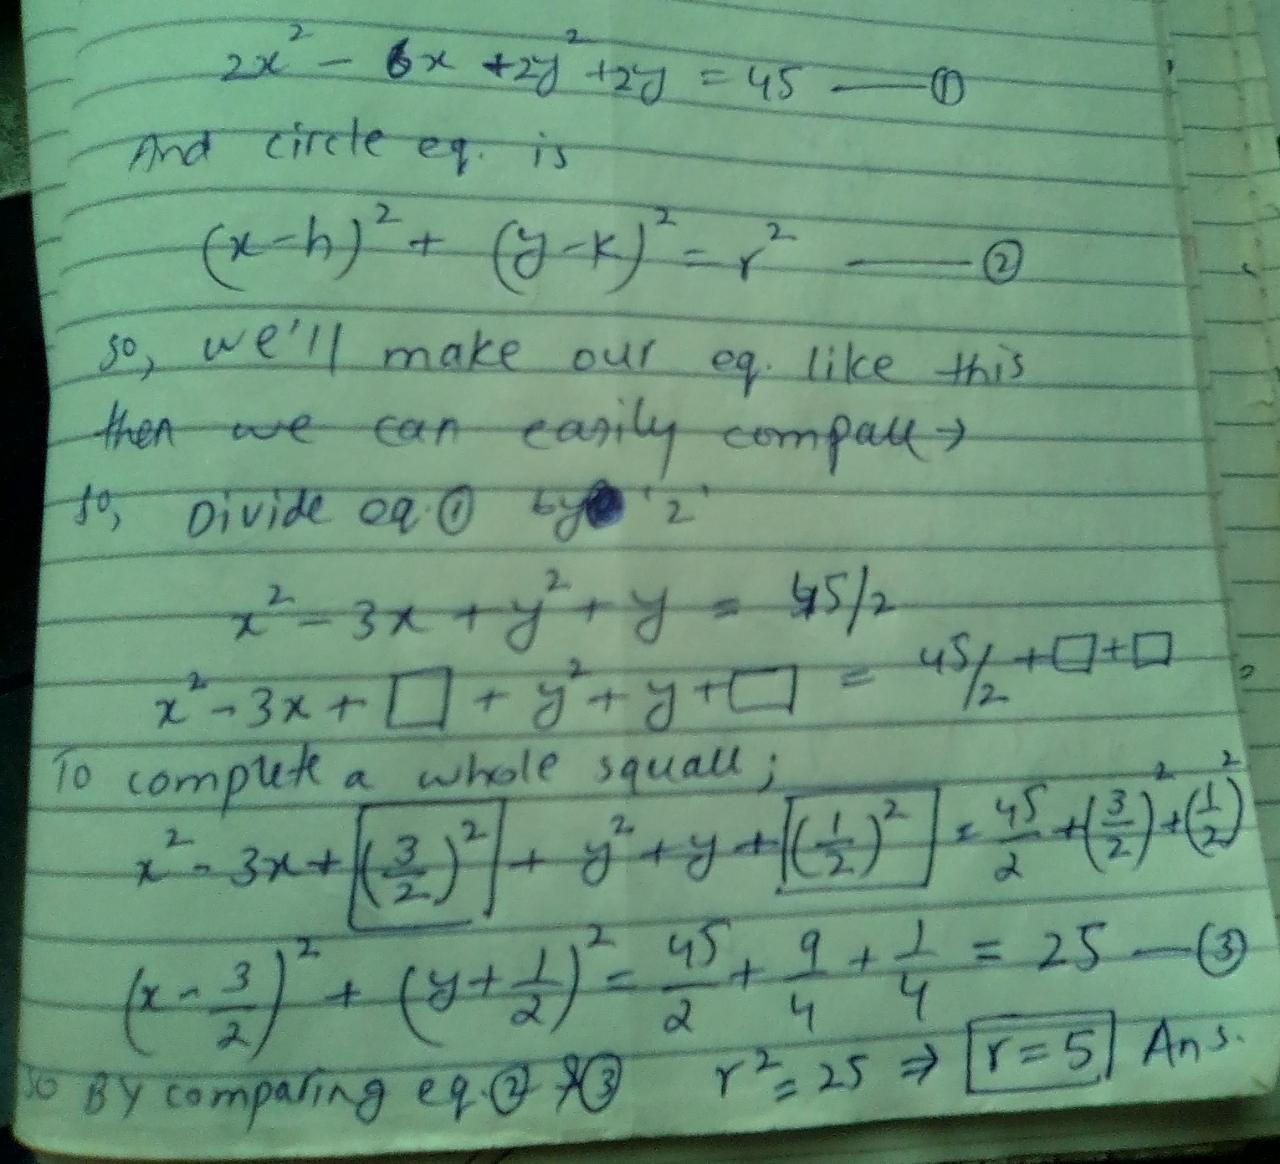 2x² - 6x + 2y² + 2y = 45 —— ①
And circle eq. is
(x-h)² + (y-k)² = r² —— ②
so, we'll make our eq. like this
then we can easily compare →
so, Divide eq. ① by '2'
x² - 3x + y² + y = 45/2
x² - 3x + □ + y² + y + □ = 45/2 + □ + □
To complete a whole square;
x² - 3x + [(3/2)²] + y² + y + [(1/2)²] = 45/2 + (3/2)² + (1/2)²
(x - 3/2)² + (y + 1/2)² = 45/2 + 9/4 + 1/4 = 25 — ③
so By comparing eq. ② & ③ r² = 25 ⇒ r = 5 Ans.